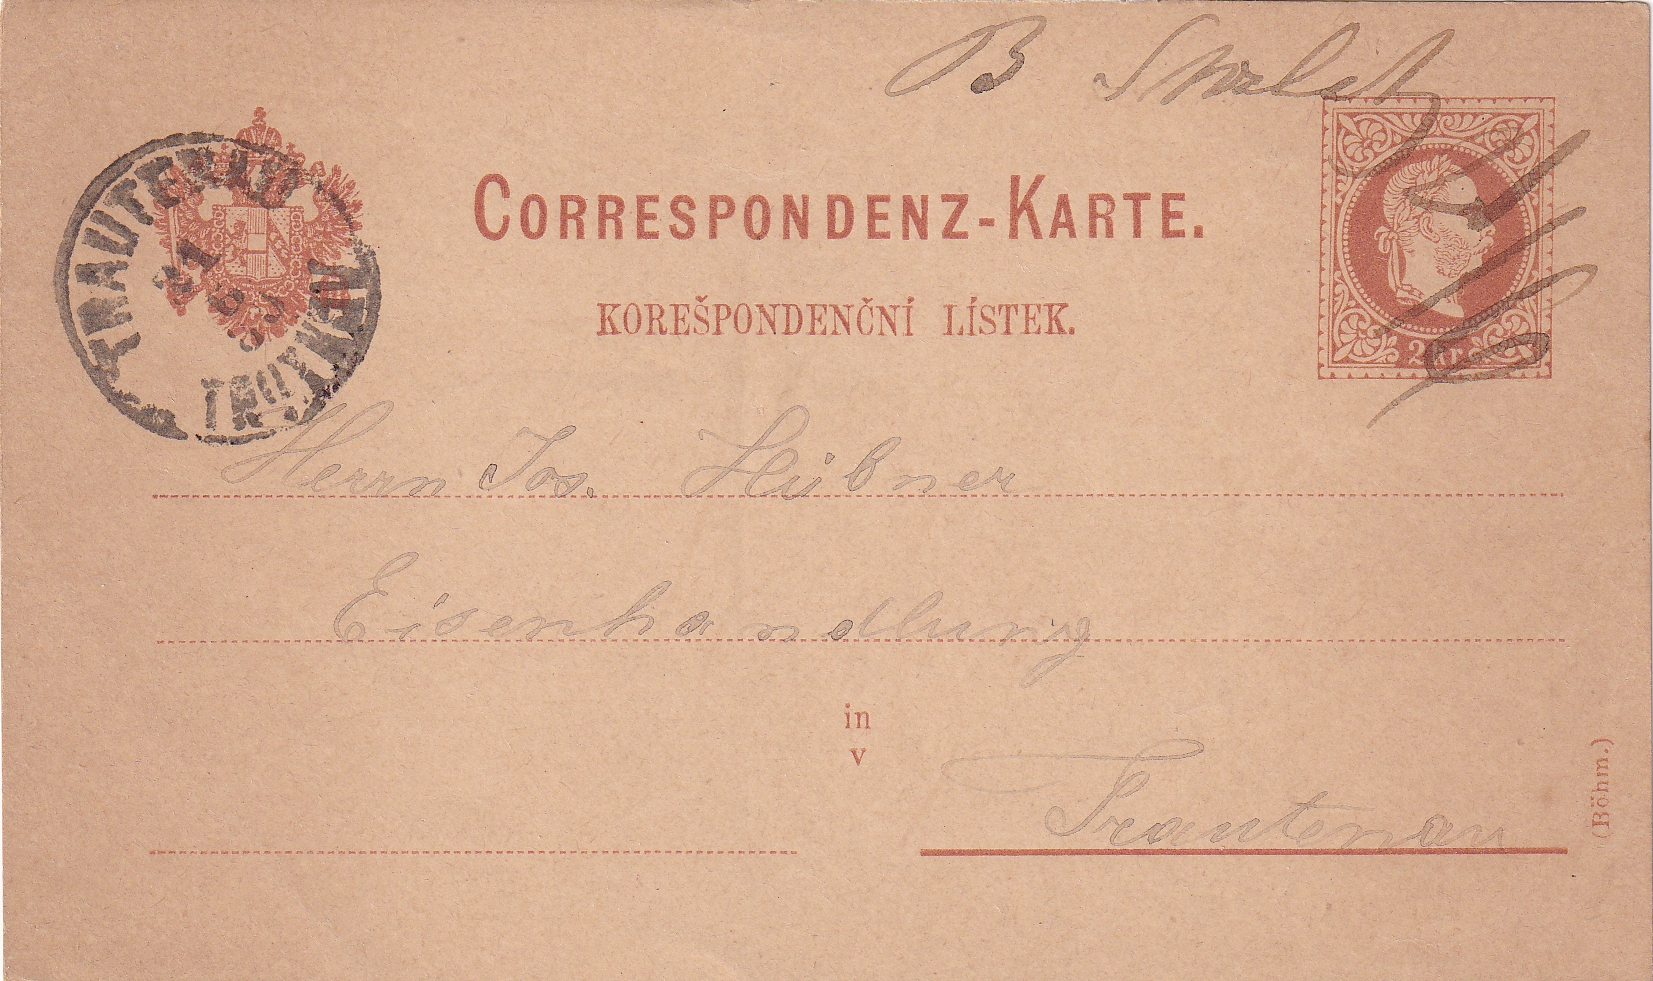 B
CORRESPONDENZ-KARTE.
KOREŠPONDENČNÍ LÍSTEK.
2 Kr.
TRAUTENAU
TRUTNOV
Herrn Jos. Hübner
Eisenhandlung
in
v
Trautenau
(Böhm.)